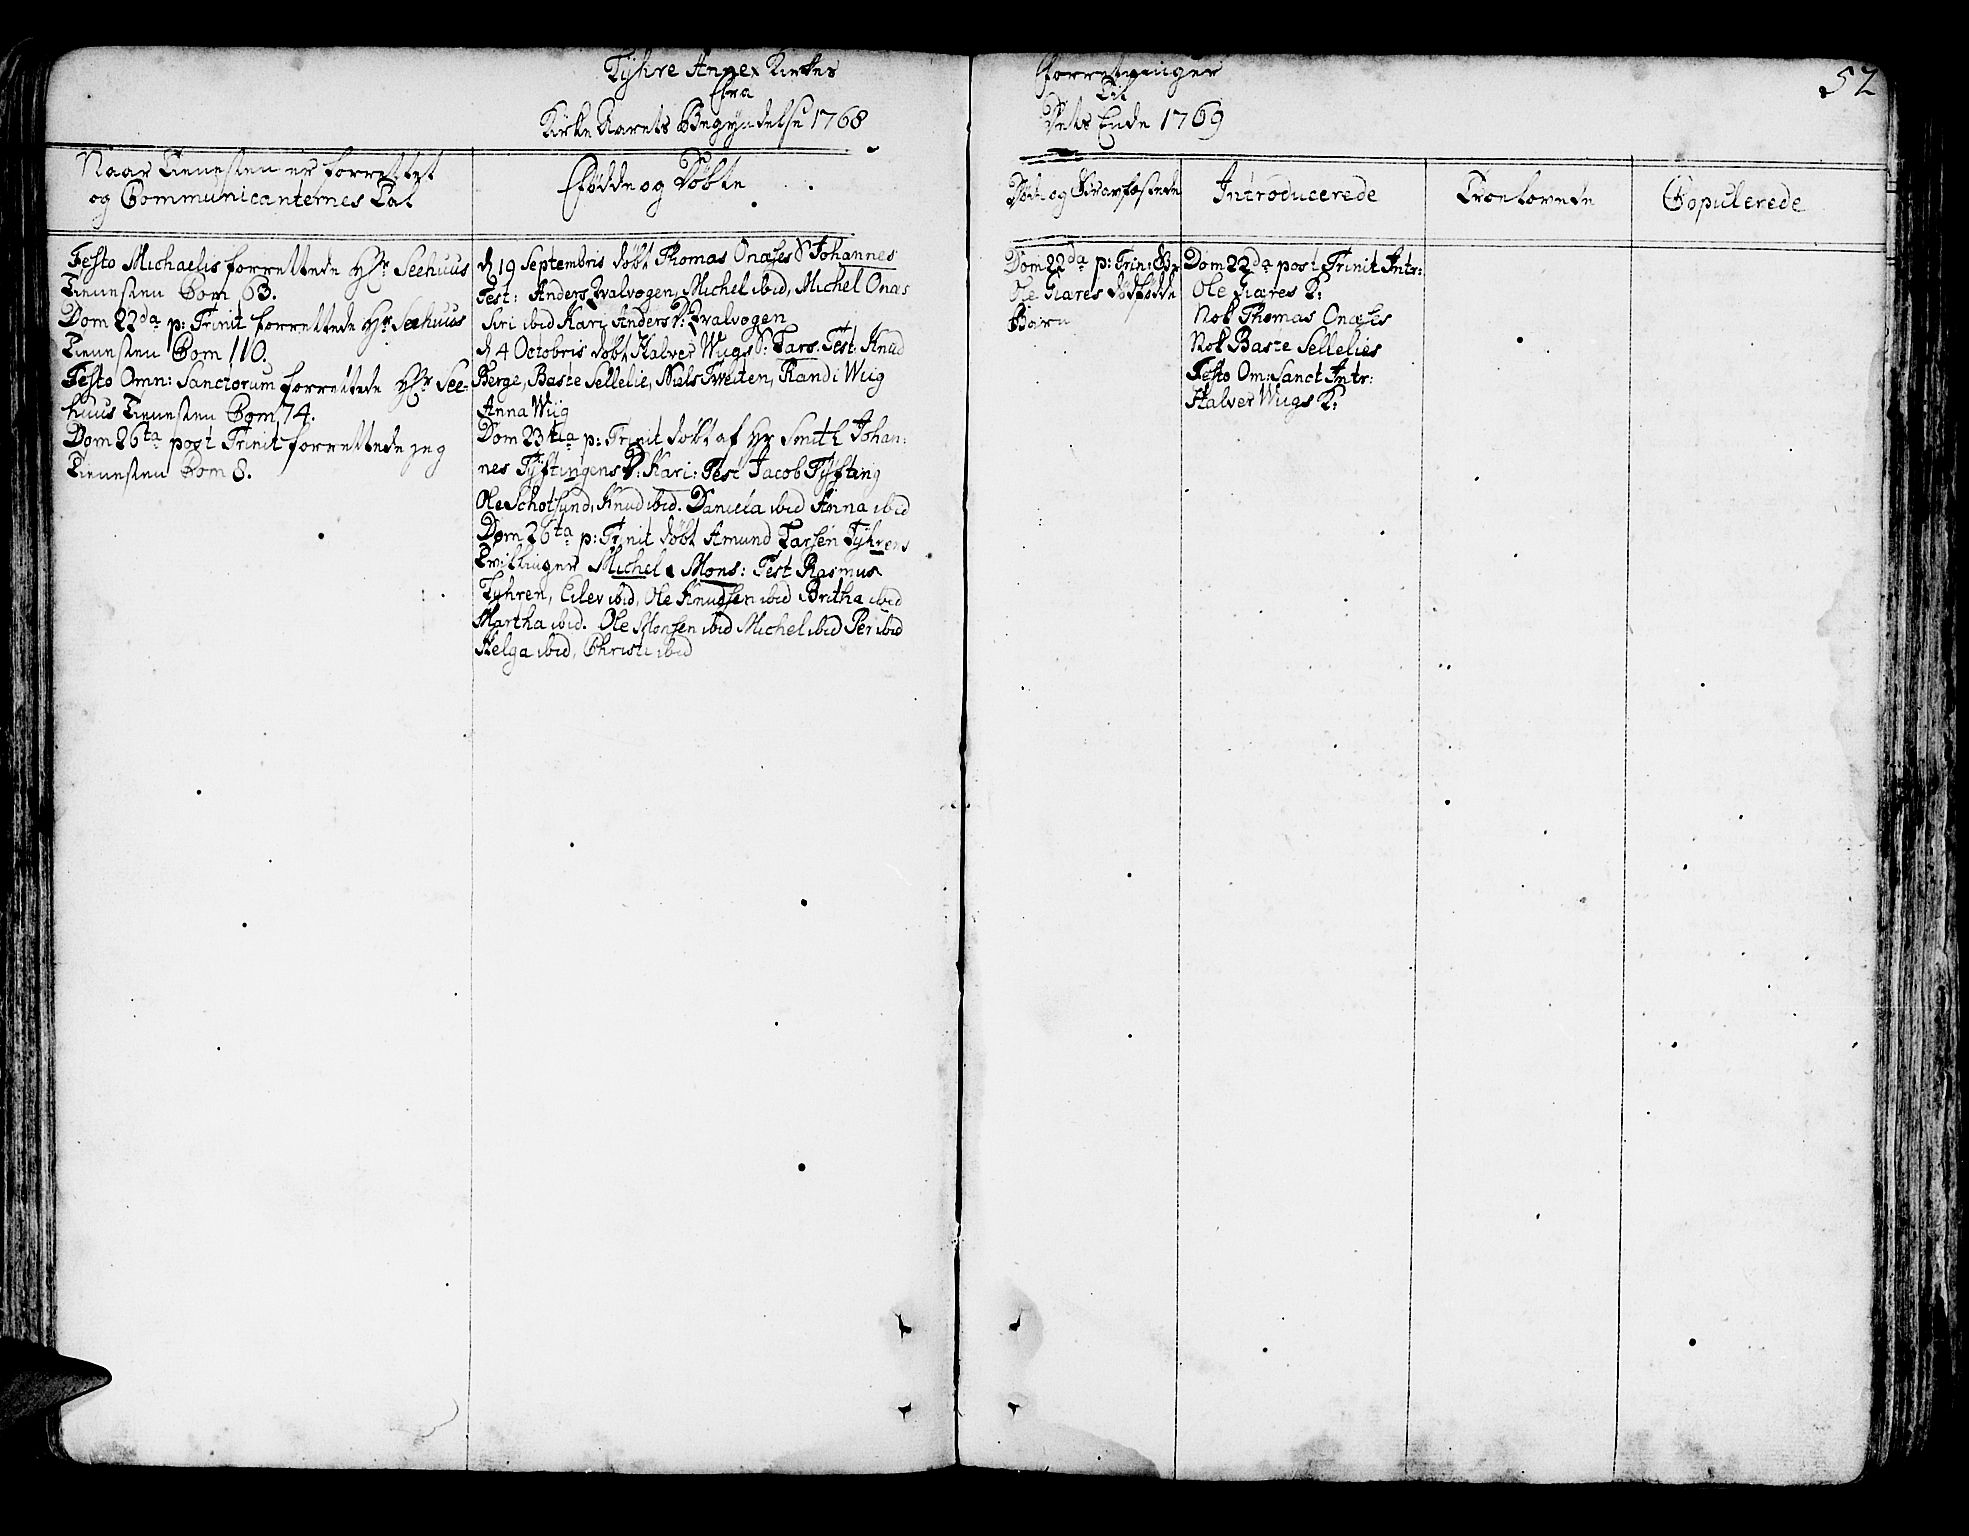 Tyhre Annex Kirkes
fra
Kirke Aarets Begyndelse 1768
Forretninger
Til
Dets Ende 1769
52
Naar Tienesten er forrettet
og Communicanternes Tal
Fødde og Døbte
Døde og Introducerede
Troelovede
Copulerede
Festo Michaelis forrettede Hr. Seehuus
Tienesten Com 63.
Dom 22da p: Trinit forrettede Hr Seehuus
Tienesten Com 110.
Festo Omn: Sanctorum forrettede Hr See-
huus Tienesten Com 74.
Dom 26ta post Trinit forrettede jeg
Tienesten Com 8.
d 19 Septembris døbt Thomas Onæses S Johannes
Test: Anders Qvalvogen, Michel ibid, Michel Onæs
Siri ibid Kari Anders D: Qvalvogen
d 4 Octobris døbt Halver Wiigs S: Lars. Test: Knud
Berge, Baste Sellelie, Niels Tweiten, Randi Wiig
Anna Wiig
Dom 23tia p: Trinit døbt af Hr Smith Johan:
nes Tyftingens D: Kari: Test Jacob Tyfting
Ole Schotsund, Knud ibid. Daniela ibid Anna ibid
Dom 26ta p: Trinit døbt Amund Larsen Tyhrens
Tvillinger Michel & Mons: Test Rasmus
Tyhren, Eilev ibid, Ole Knudsen ibid Britha ibid
Martha ibid. Ole Monsen ibid Michel ibid Per ibid
Helga ibid, Christi ibid
Dom 22da p: Trin:
Ole Giæres dødfødde
Barn
Dom 22da post Trinit Intr:
Ole Giæres K:
Nok Thomas Onæses
Nok Baste Sellelies
Festo Om: Sanct Intr:
Halver Wiigs K: